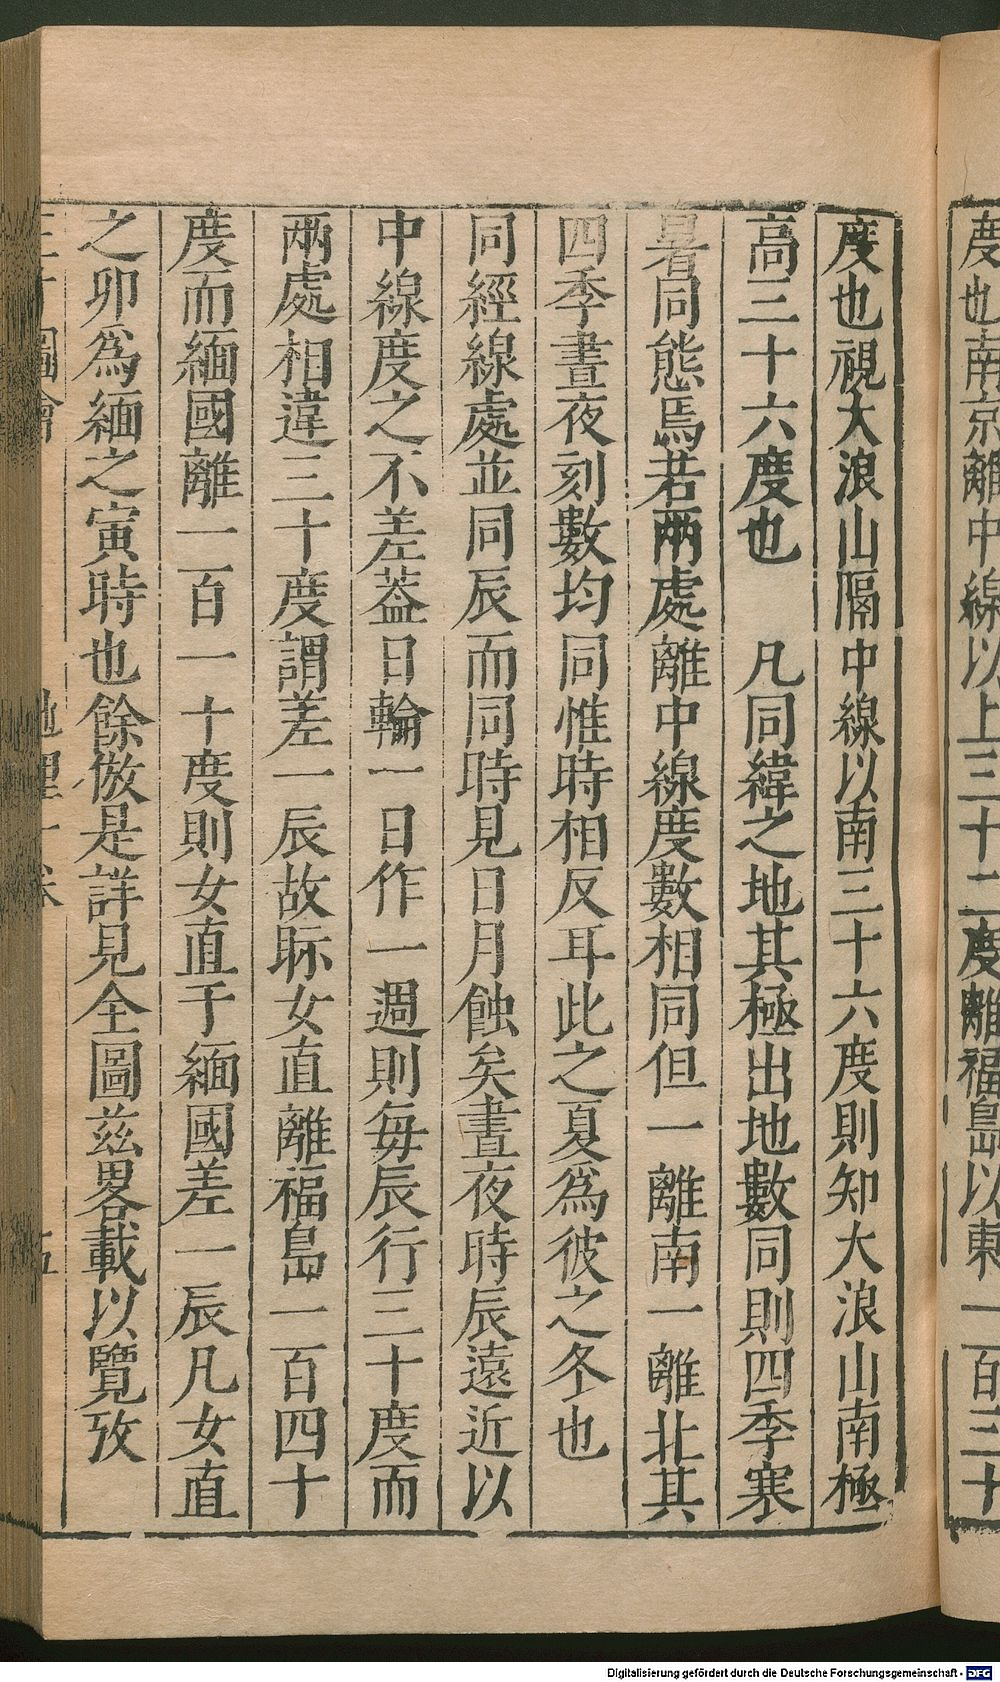 度也南京離中線以上三十二度離福島以東一百三十
度也視大浪山隔中線以南三十六度則知大浪山南極
高三十六度也　凡同緯之地其極出地數同則四季寒
暑同態焉若兩處離中線度數相同但一離南一離北其
四季晝夜刻數均同惟時相反耳此之夏爲彼之冬也
同經線處並同辰而同時見日月蝕矣晝夜時辰遠近以
中線度之不差葢日輪一日作一週則每辰行三十度而
兩處相違三十度謂差一辰故眎女直離福島一百四十
度而緬國離一百一十度則女直于緬國差一辰凡女直
之卯爲緬之寅時也餘倣是詳見全圖兹畧載以覽攷
圖會　地理一卷　五
Digitalisierung gefördert durch die Deutsche Forschungsgemeinschaft - DFG